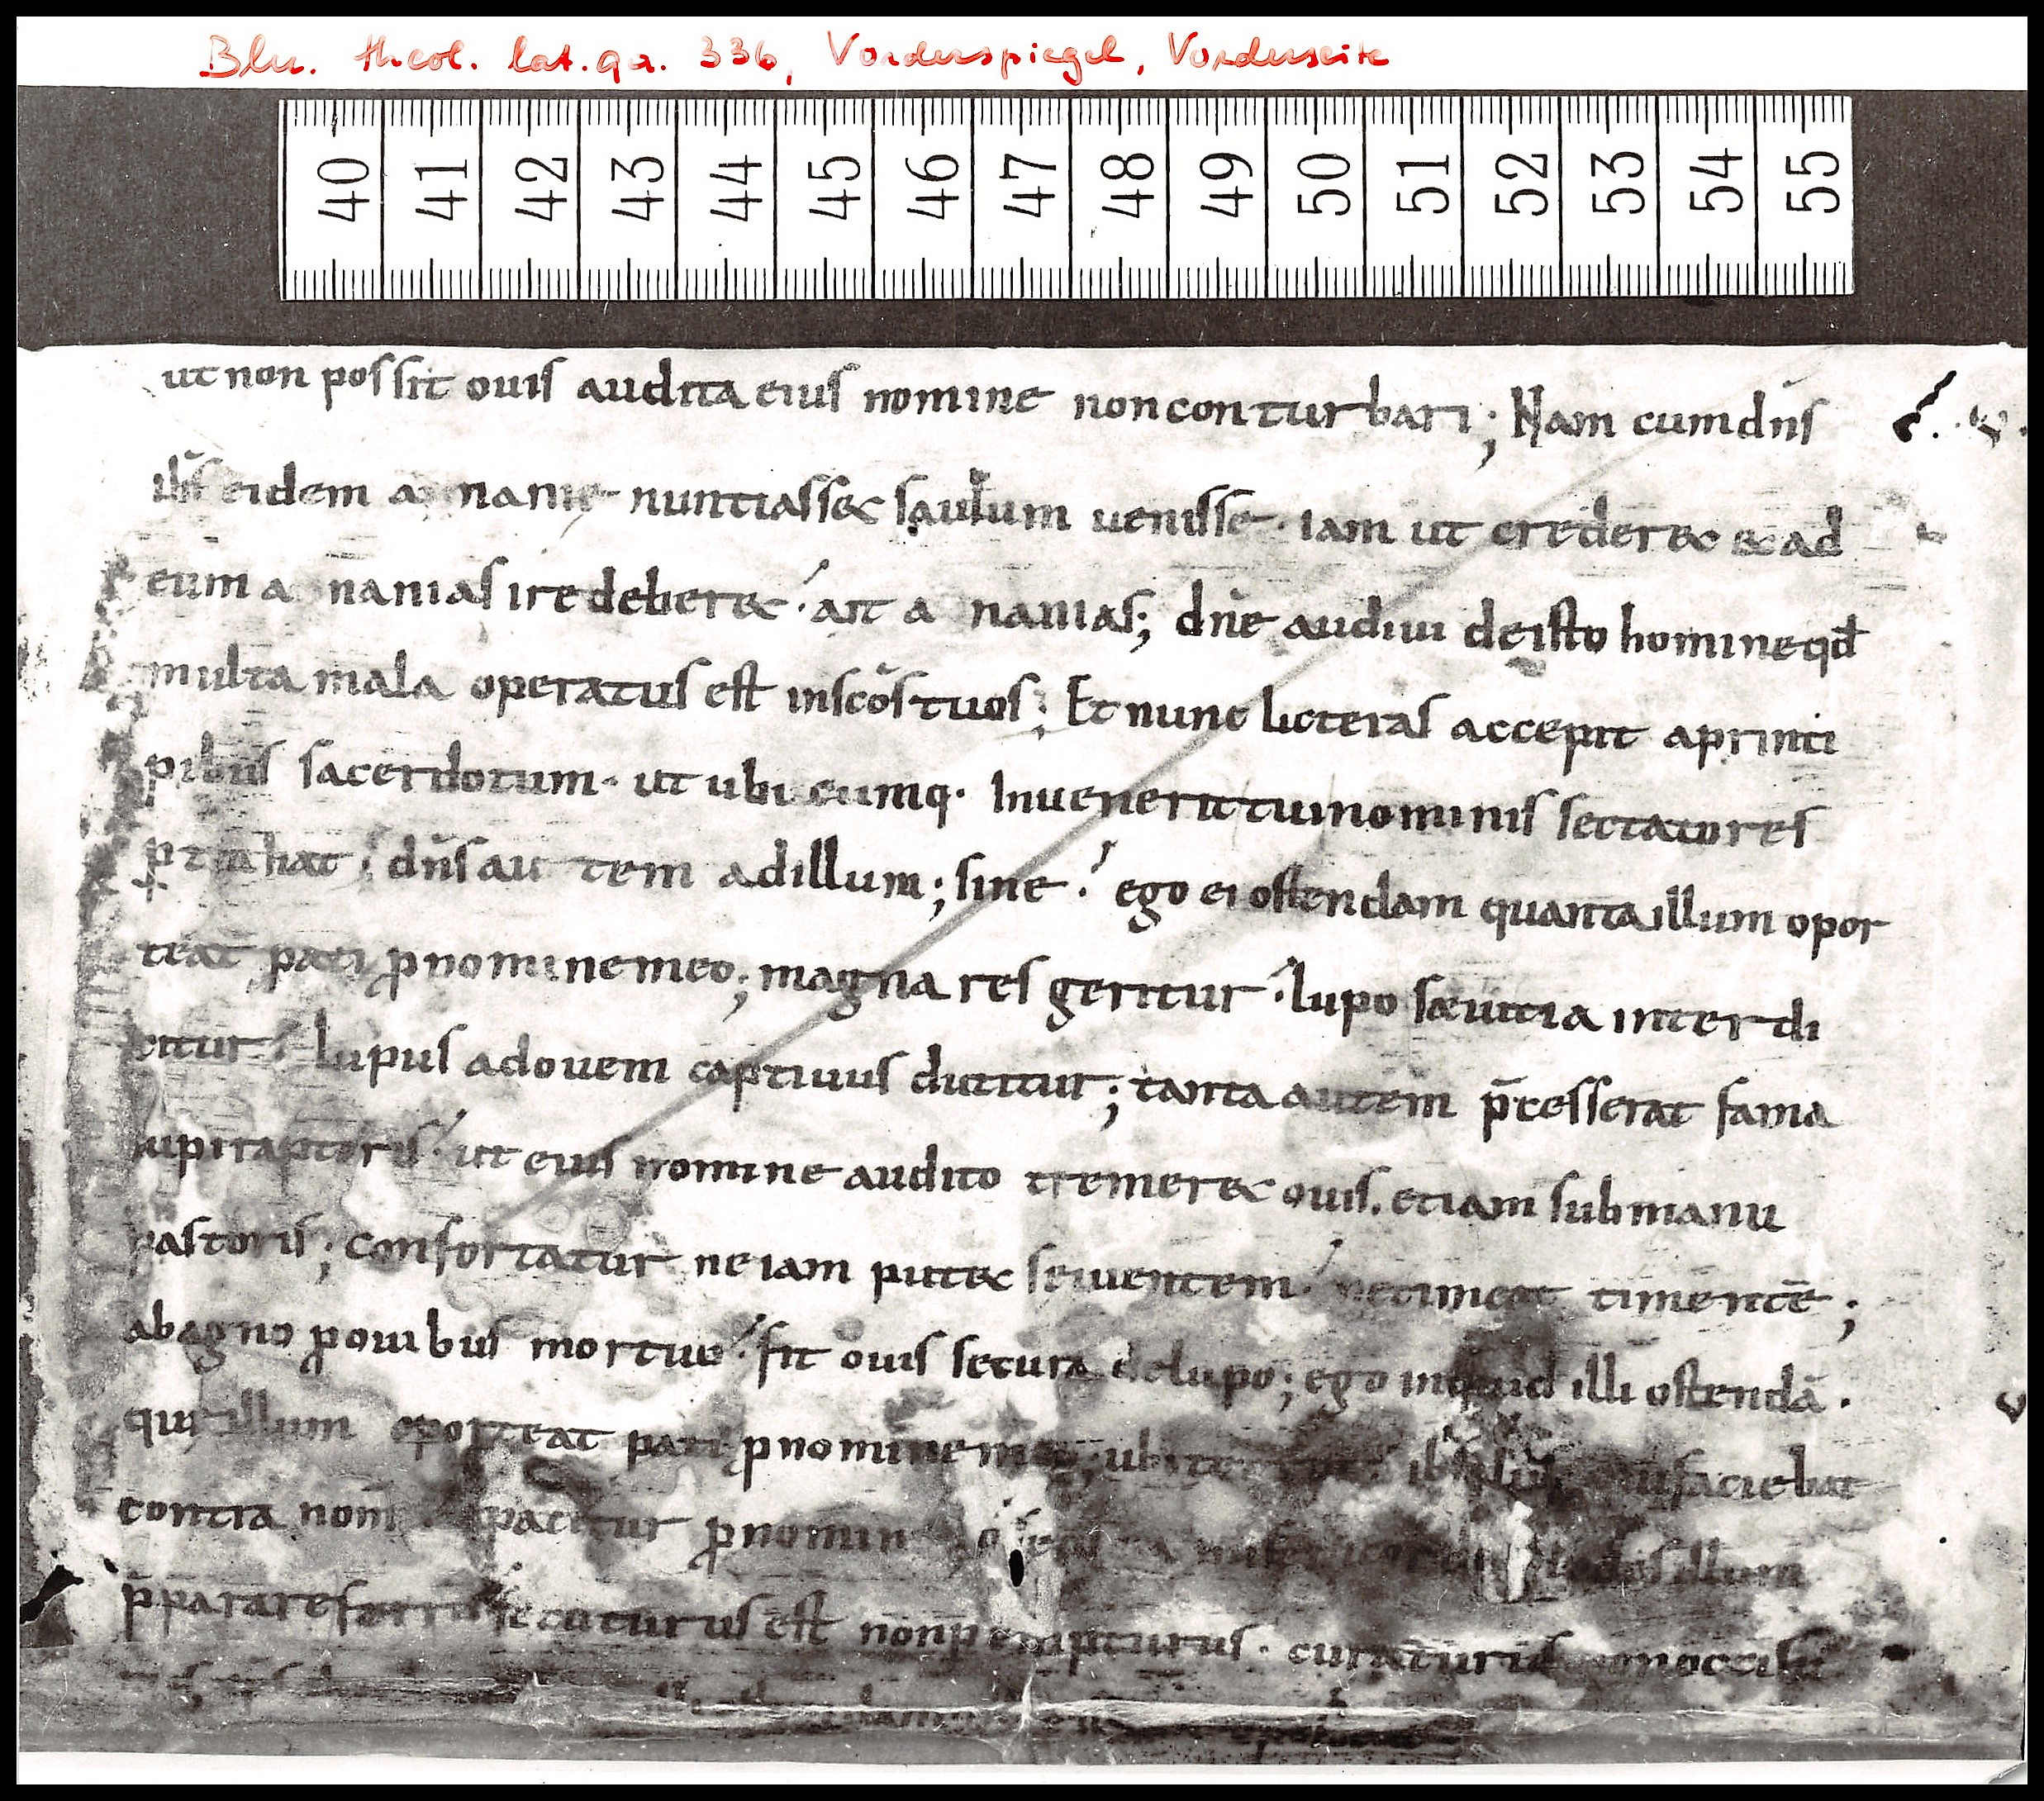 Bln. theol. lat. qu. 336, Vorderspiegel, Vorderseite
40 41 42 43 44 45 46 47 48 49 50 51 52 53 54 55
ut non possit ouis audita eius nomine non conturbari; Nam cum dn̄s
ih̄s eidem a nanie nuntiass& saulum uenisse · iam ut creder& & ad
eum a nanias ire deber&· ait a nanias; dn̄e audiui de isto homine qđ
multa mala operatus est in sc̄os tuos; Et nunc litteras accepit a princi
pibus sacerdotum · ut ubi cumq· Inuenerit tui nominis sectatores
dn̄s au tem ad illum; sine · ego ei ostendam quanta illum opor
teat pati ꝓ nomine meo; magna res geritur · lupo sæuitia interdi
citur · lupus ad ouem captiuus ducitur; tanta autem p̄cesserat fama
lupi raptoris · ut eius nomine audito tremer& ouis. etiam sub manu
pastoris; confortatur ne iam put& seuientem · ne timeat timentē;
ab agno ꝓ ouibus mortuo · fit ouis secura de lupo; ego inquid illi ostendā ·
illum oporteat pati ꝓ nomine meo; faciebat
contra nom patitur ꝓ nomin illum
p̄parare ferrū secaturus est non perempturus · curaturus non occisu